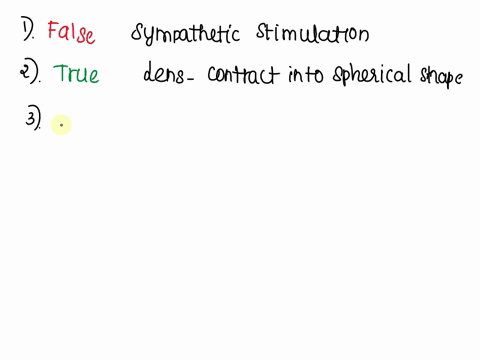 1). False sympathetic stimulation
2). True dens- contract into spherical shape
3).